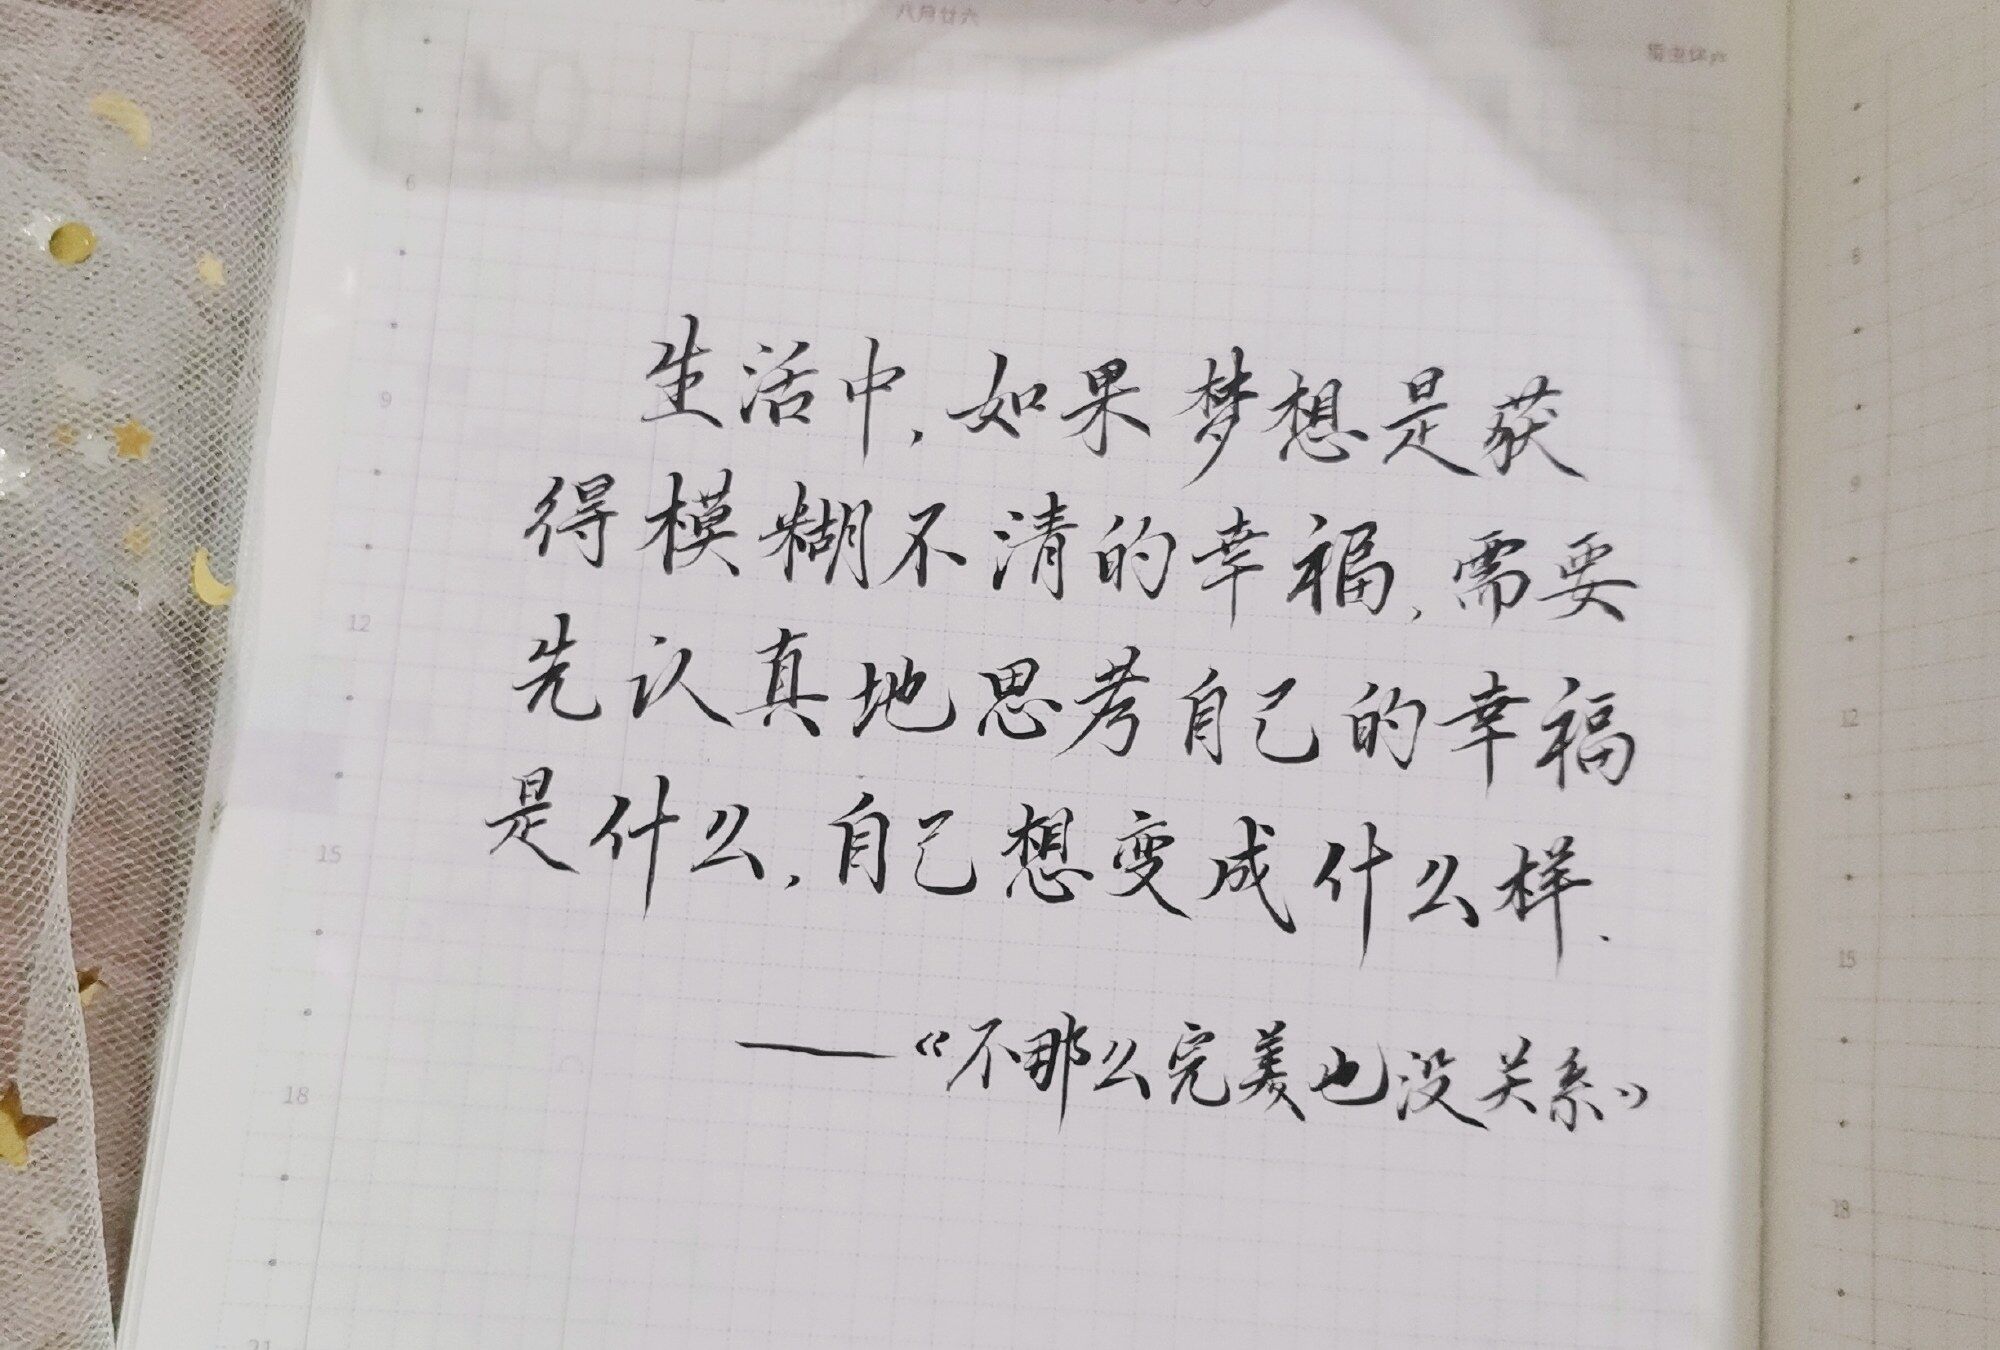 八月廿六
6
9
12
15
18
21
生活中,如果梦想是获
得模糊不清的幸福,需要
先认真地思考自己的幸福
是什么,自己想变成什么样.
——《不那么完美也没关系》
6
9
12
15
18